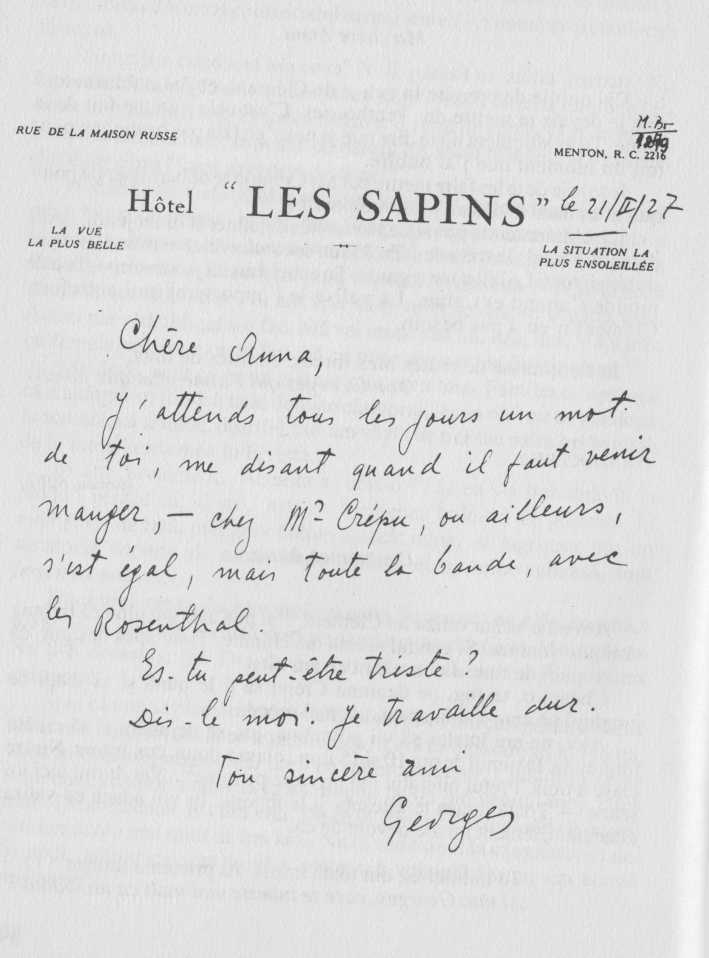 M. Br
1219
RUE DE LA MAISON RUSSE
MENTON, R. C. 2216
Hôtel "LES SAPINS" le 21/II/27
LA VUE
LA PLUS BELLE
LA SITUATION LA
PLUS ENSOLEILLÉE
Chère Anna,
J'attends tous les jours un mot
de toi, me disant quand il faut venir
manger, – chez Mr Crépu, ou ailleurs,
s'est égal, mais toute la bande, avec
les Rosenthal.
Es-tu peut-être triste?
Dis-le moi. Je travaille dur.
Ton sincère ami
Georges